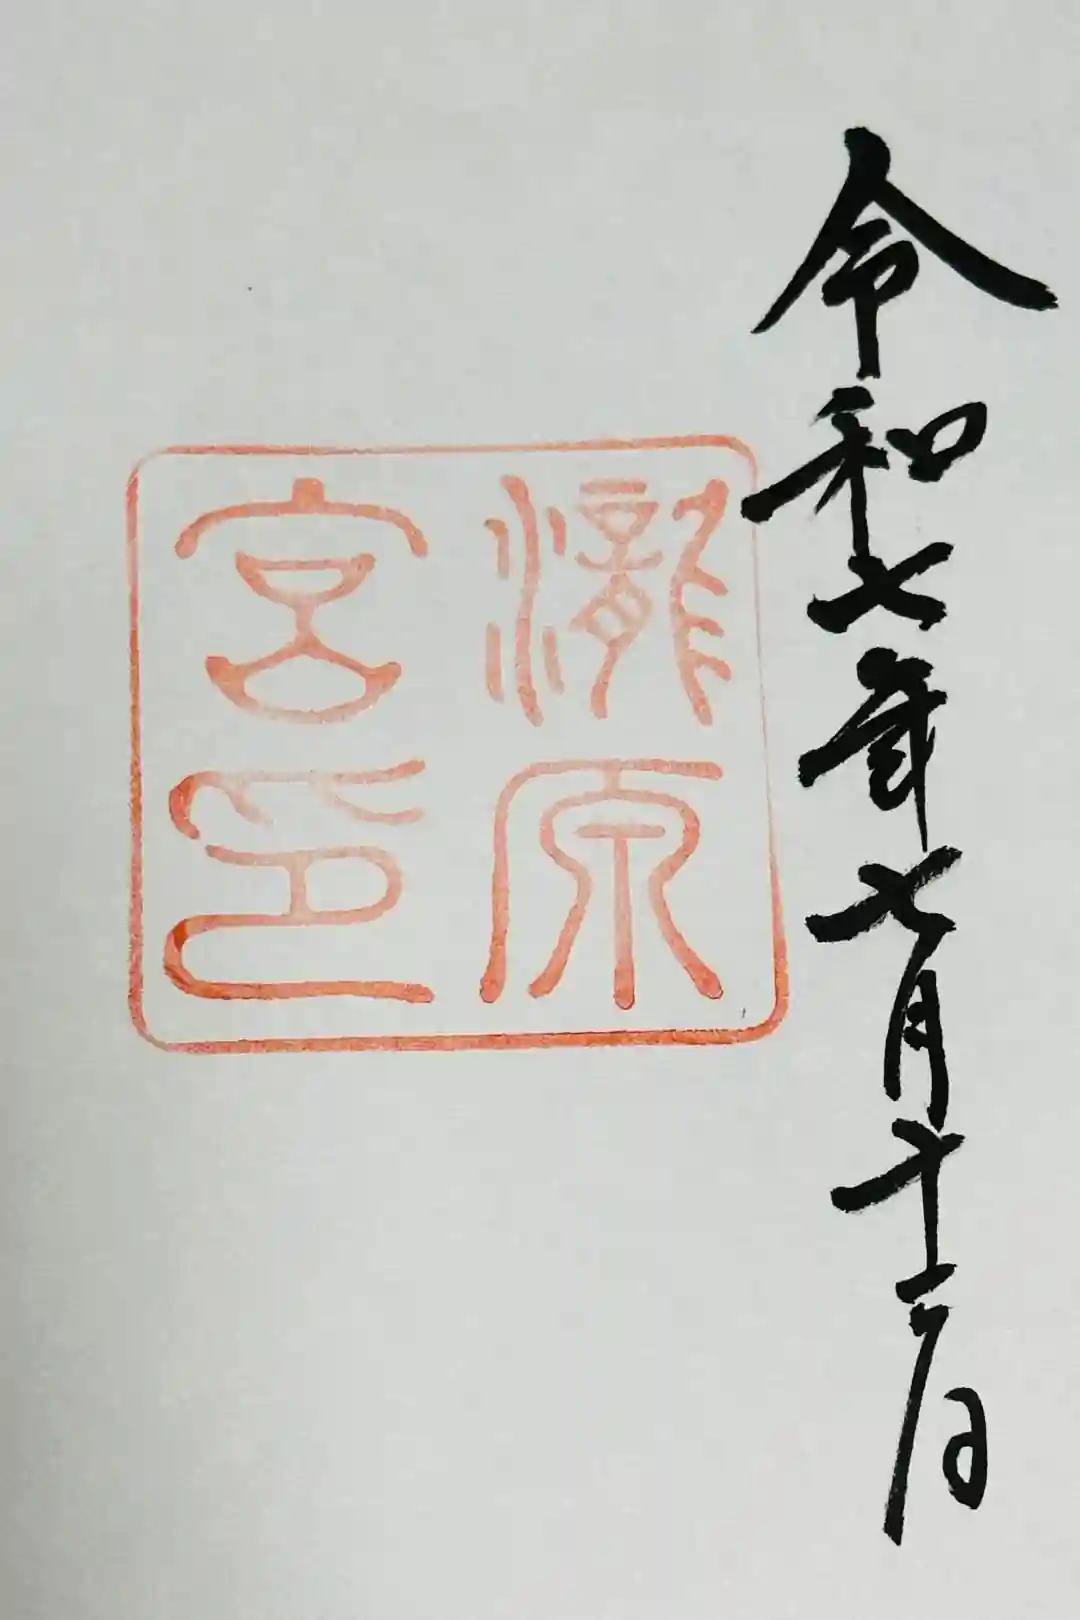 令和七年七月十二日
瀧原
宮印